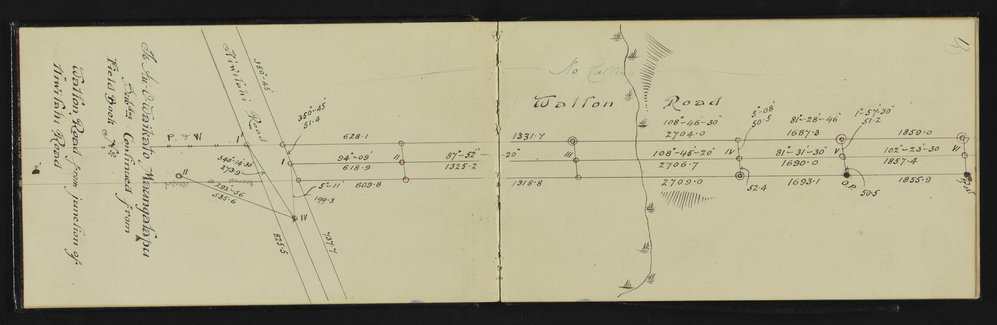 Te Au-O-Waikato Maungakapu
Continued from
Field Book No
Walton Road from junction of
Tiwitahi Road
Tiwitahi Road
350°-45'
350°-45'
51.4
628.1
P W
I
I
94°-09'
618.9
II
87°-52'
1325.2
346°-14'-30"
273.9
II
282°-56'
585.6
5°-11'
199.3
609.8
IV
825.5
737.7
No
Walton Road
1331.7
108°-46'-30"
2704.0
5°-08'
50.5
81°-28'-46"
1687.3
1°-57'-30"
51.2
1859.0
20"
III
108°-45'-20"
2706.7
IV
81°-31'-30"
1690.0
V
102°-23'-30
1857.4
VI
1318.8
2709.0
52.4
1693.1
O.P.
50.5
1855.9